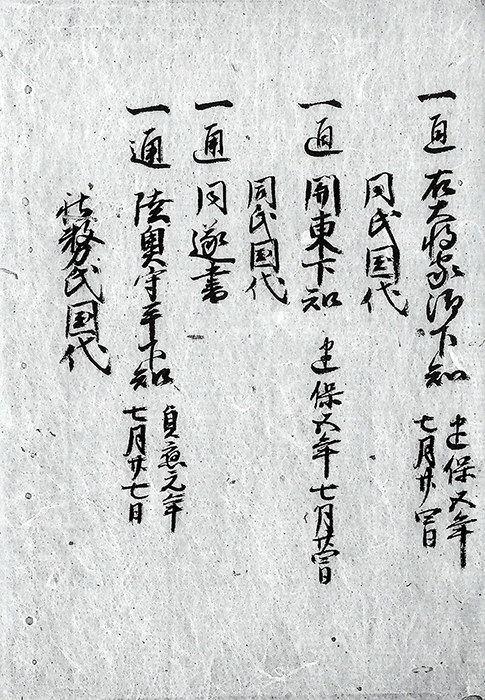 一通 右大将家御下知 建保五年
七月廿四日
同氏国代
一通 関東下知 建保五年七月廿四日
同氏国代
一通 同遂書
一通 陸奥守平下知 貞應元年
七月廿七日
社務氏国代